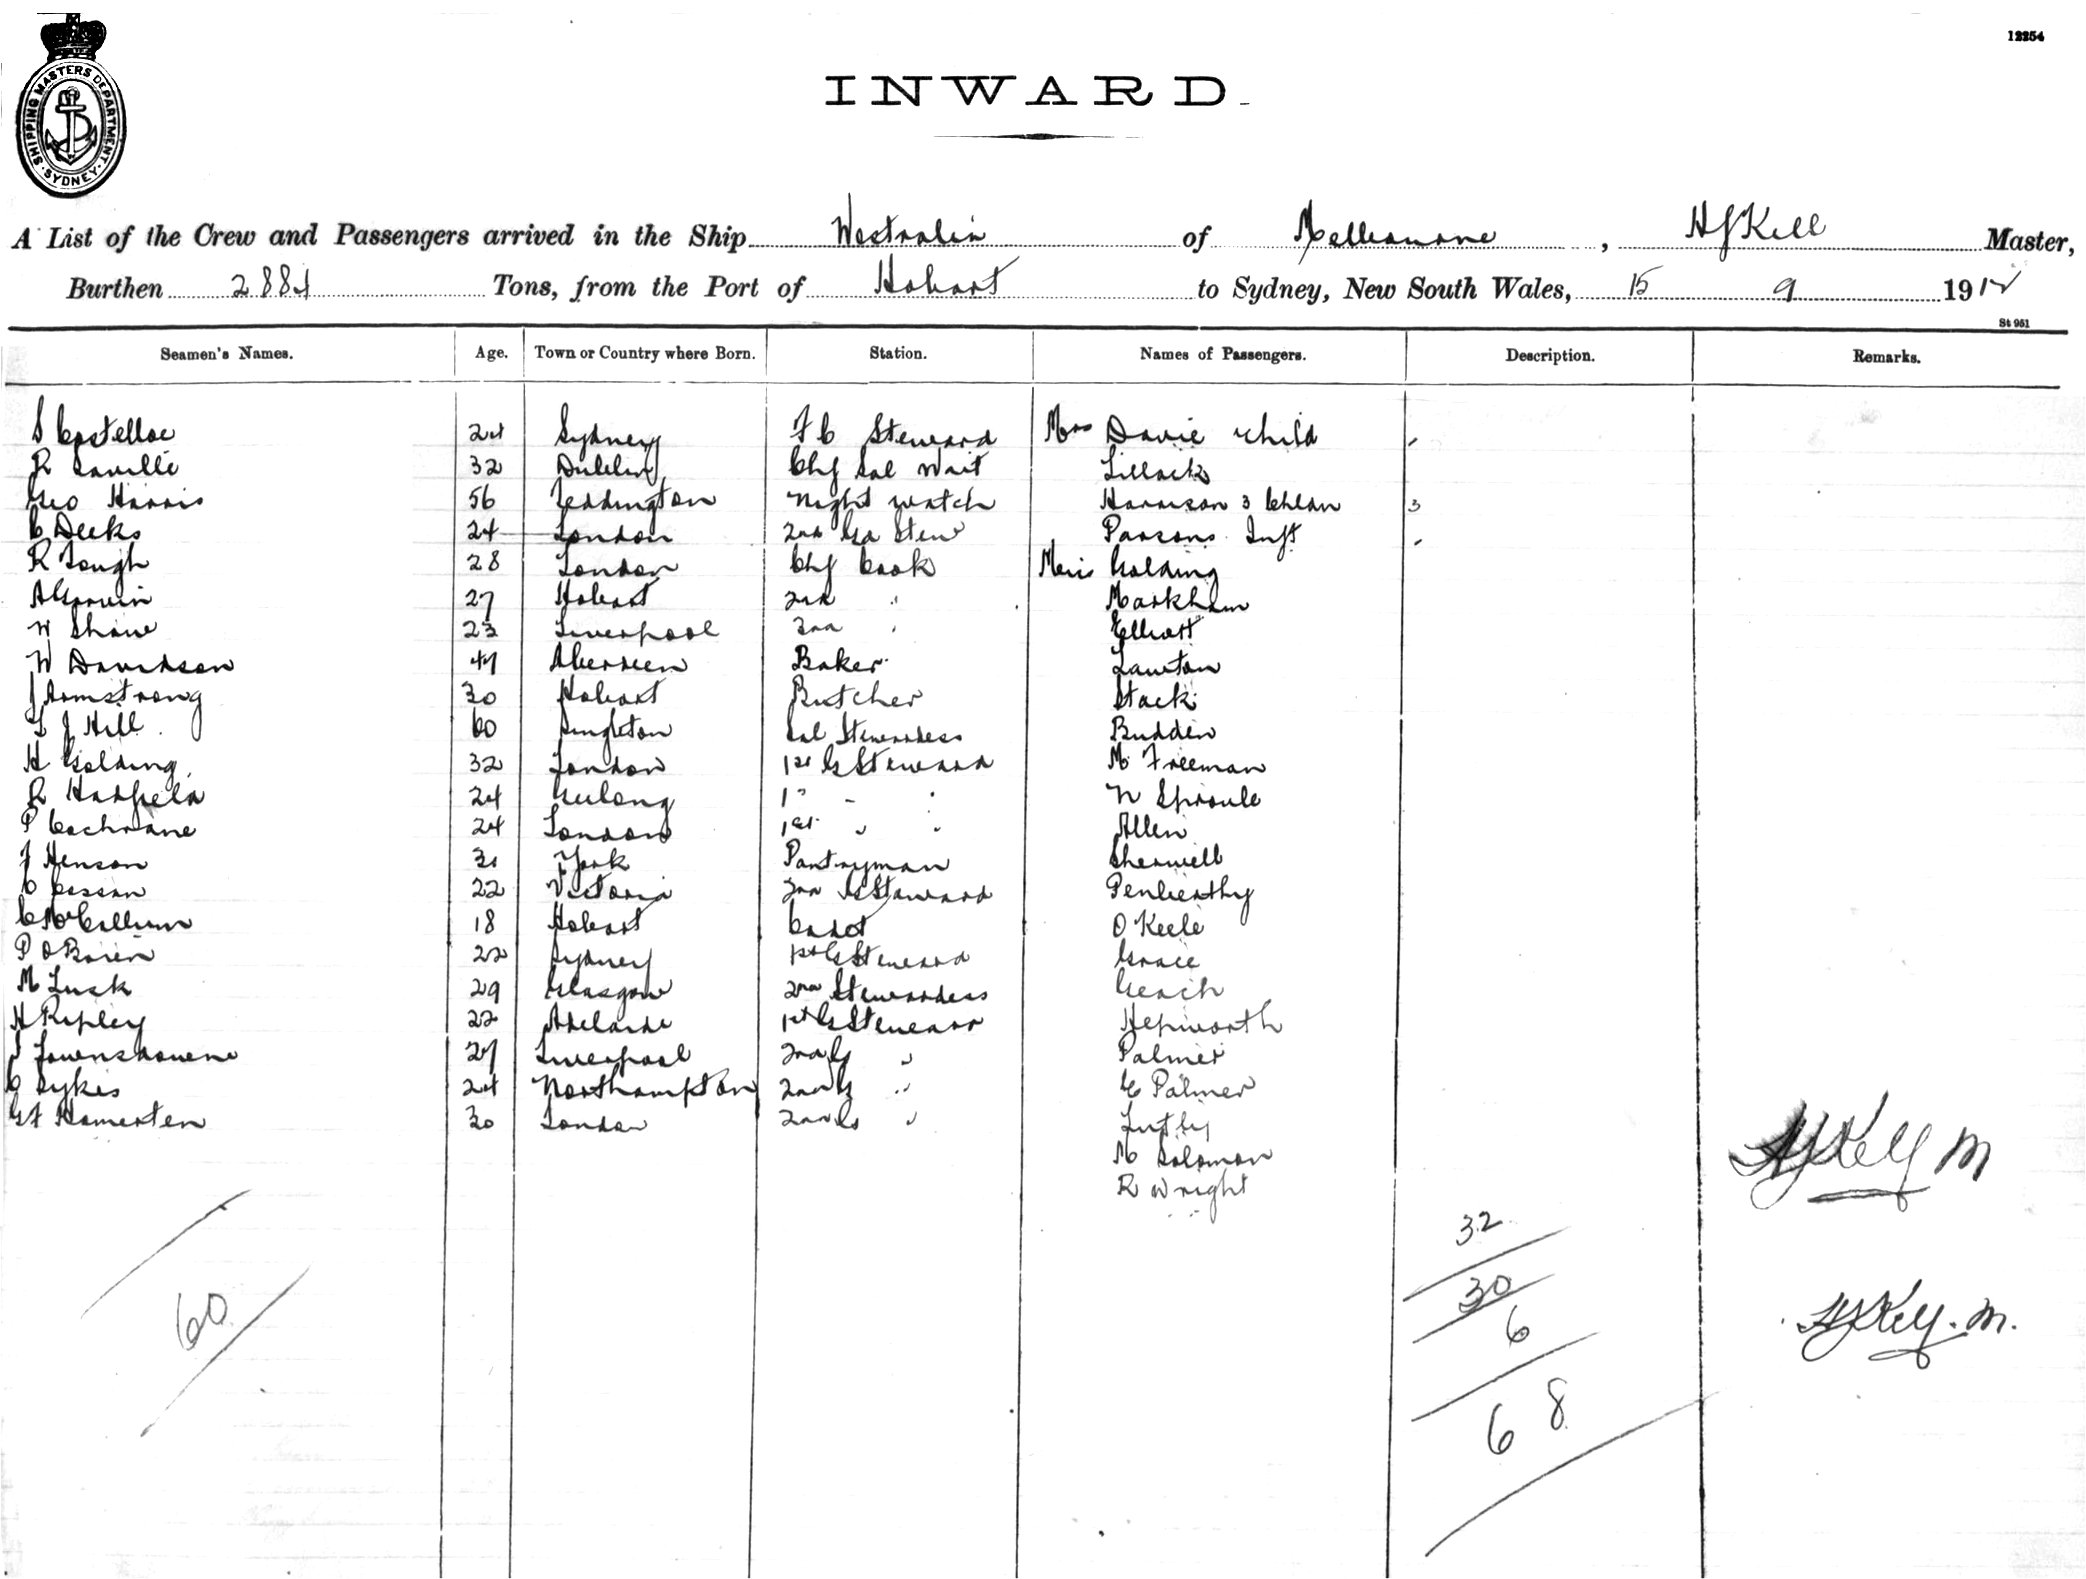 12254
SHIPPING MASTERS DEPARTMENT. SYDNEY.
INWARD.
A List of the Crew and Passengers arrived in the Ship Westralia of Melbourne, H J Kell Master,
Burthen 2884 Tons, from the Port of Hobart to Sydney, New South Wales, 15 9 1912
St 951
Seamen's Names. Age. Town or Country where Born. Station. Names of Passengers. Description. Remarks.
S Costelloe 24 Sydney F C Steward Mrs Davie & child
R Saville 32 Dublin Chf Sal Wait Lillack
Geo Harris 56 Teddington Night Watch Harrison 3 Chldn 3
C Deeks 24 London 2nd Stew Parsons Inft
R Tough 28 London Chf Cook Golding
27 Hobart 2nd " Markham
W Shaw 23 Liverpool 3rd " Elliott
W Davidson 47 Aberdeen Baker Lawton
J Armstrong 30 Hobart Butcher Stack
J Hill 60 Singleton Sal Stewardess Budden
H Golding 32 London 1st G Steward M Freeman
R Hadfield 24 Geelong 1st " " W Sproule
P Cochrane 24 London 1st " " Allen
J Henson 31 York Pantryman Sherwell
C Cassan 22 Victoria 2nd G Steward Penberthy
C McCallum 18 Hobart Cadet O Keefe
P O'Brien 22 Sydney 1st G Steward Grace
M Lusk 29 Glasgow 2nd Stewardess Geach
H Ripley 22 Adelaide 1st G Steward Hepworth
27 Liverpool 2nd G " Palmer
C Sykes 24 Northampton 2nd G " E Palmer
Homerten 30 London 2nd G "
M Solomon
R Wright
HJKell M
32
30
6
60
HJKell. M.
68